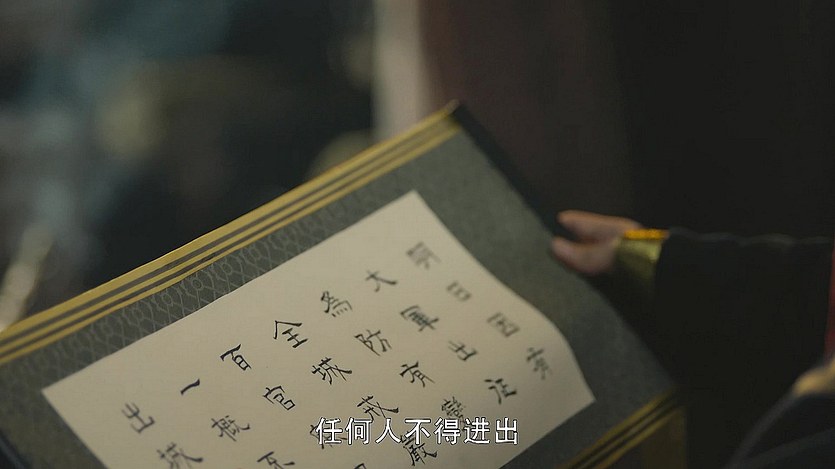 明日因有
大軍出征
為防有變
全城戒嚴
百官
一概
出城
任何人不得进出